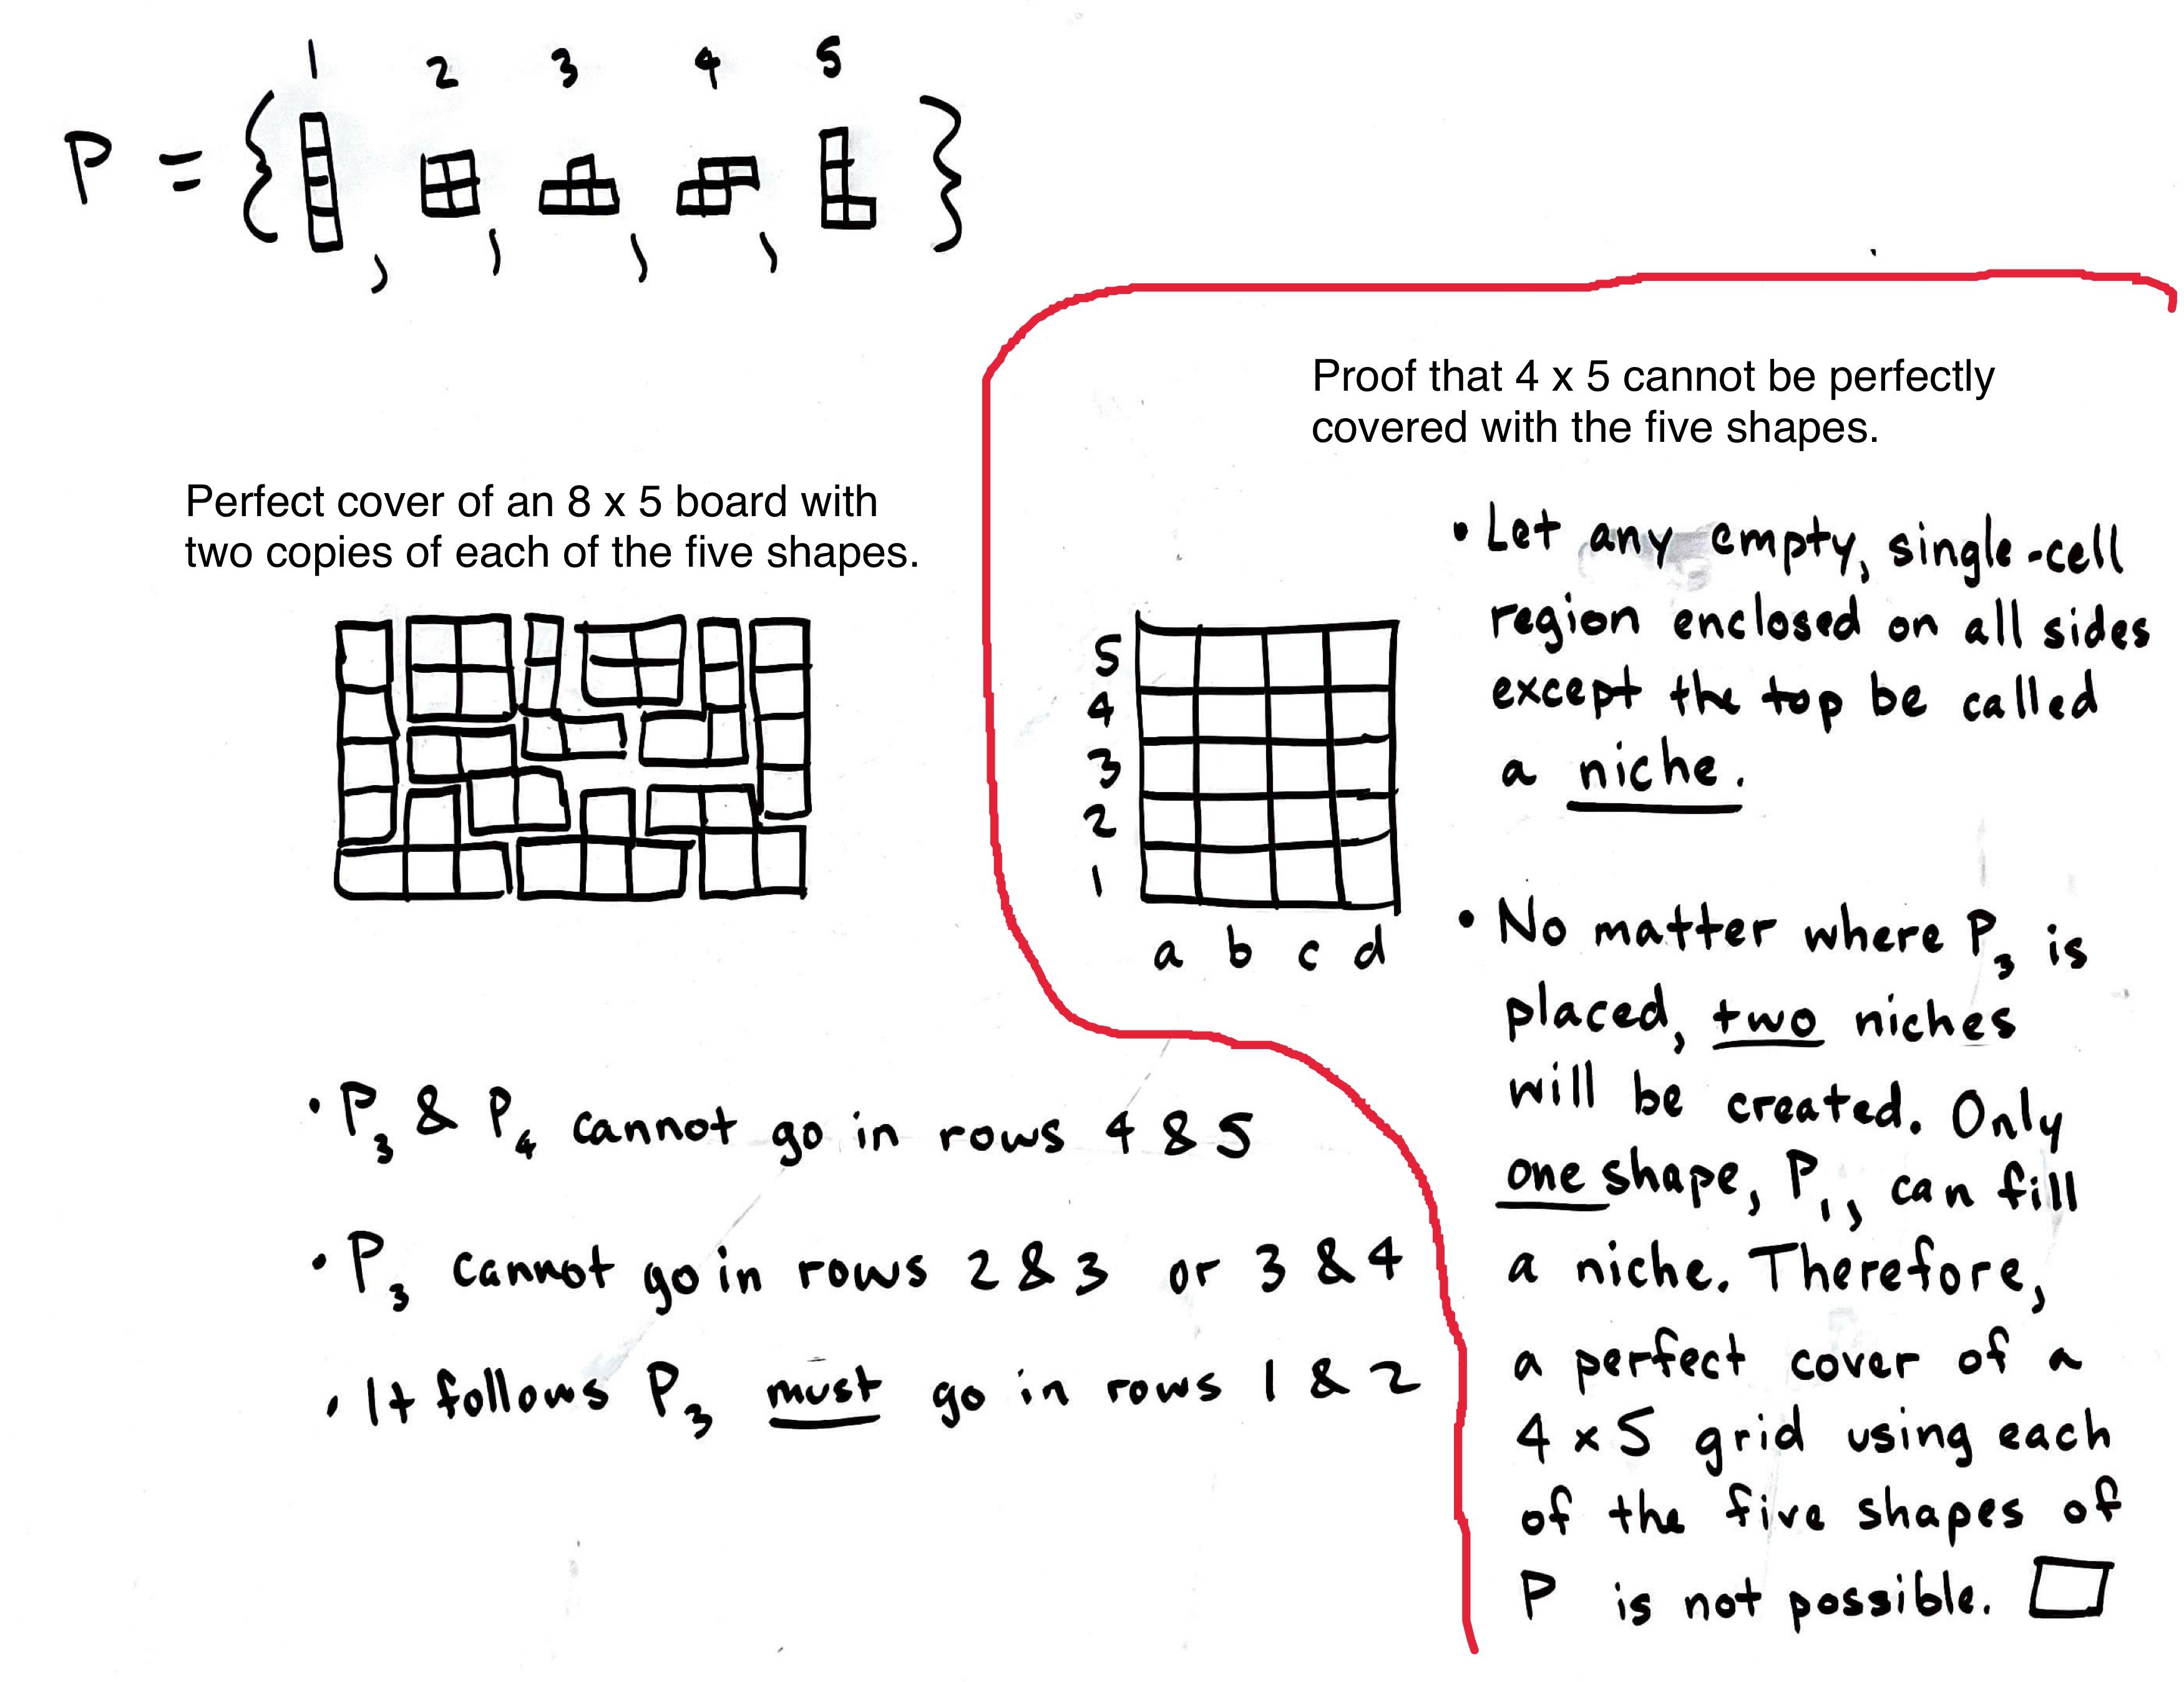 1 2 3 4 5
P = { , , , , }
Perfect cover of an 8 x 5 board with
two copies of each of the five shapes.
• P₃ & P₄ cannot go in rows 4 & 5
• P₃ cannot go in rows 2 & 3 or 3 & 4
• It follows P₃ must go in rows 1 & 2
Proof that 4 x 5 cannot be perfectly
covered with the five shapes.
5
4
3
2
1
a b c d
• Let any empty, single-cell
region enclosed on all sides
except the top be called
a niche.
• No matter where P₃ is
placed, two niches
will be created. Only
one shape, P₁, can fill
a niche. Therefore,
a perfect cover of a
4 x 5 grid using each
of the five shapes of
P is not possible. □